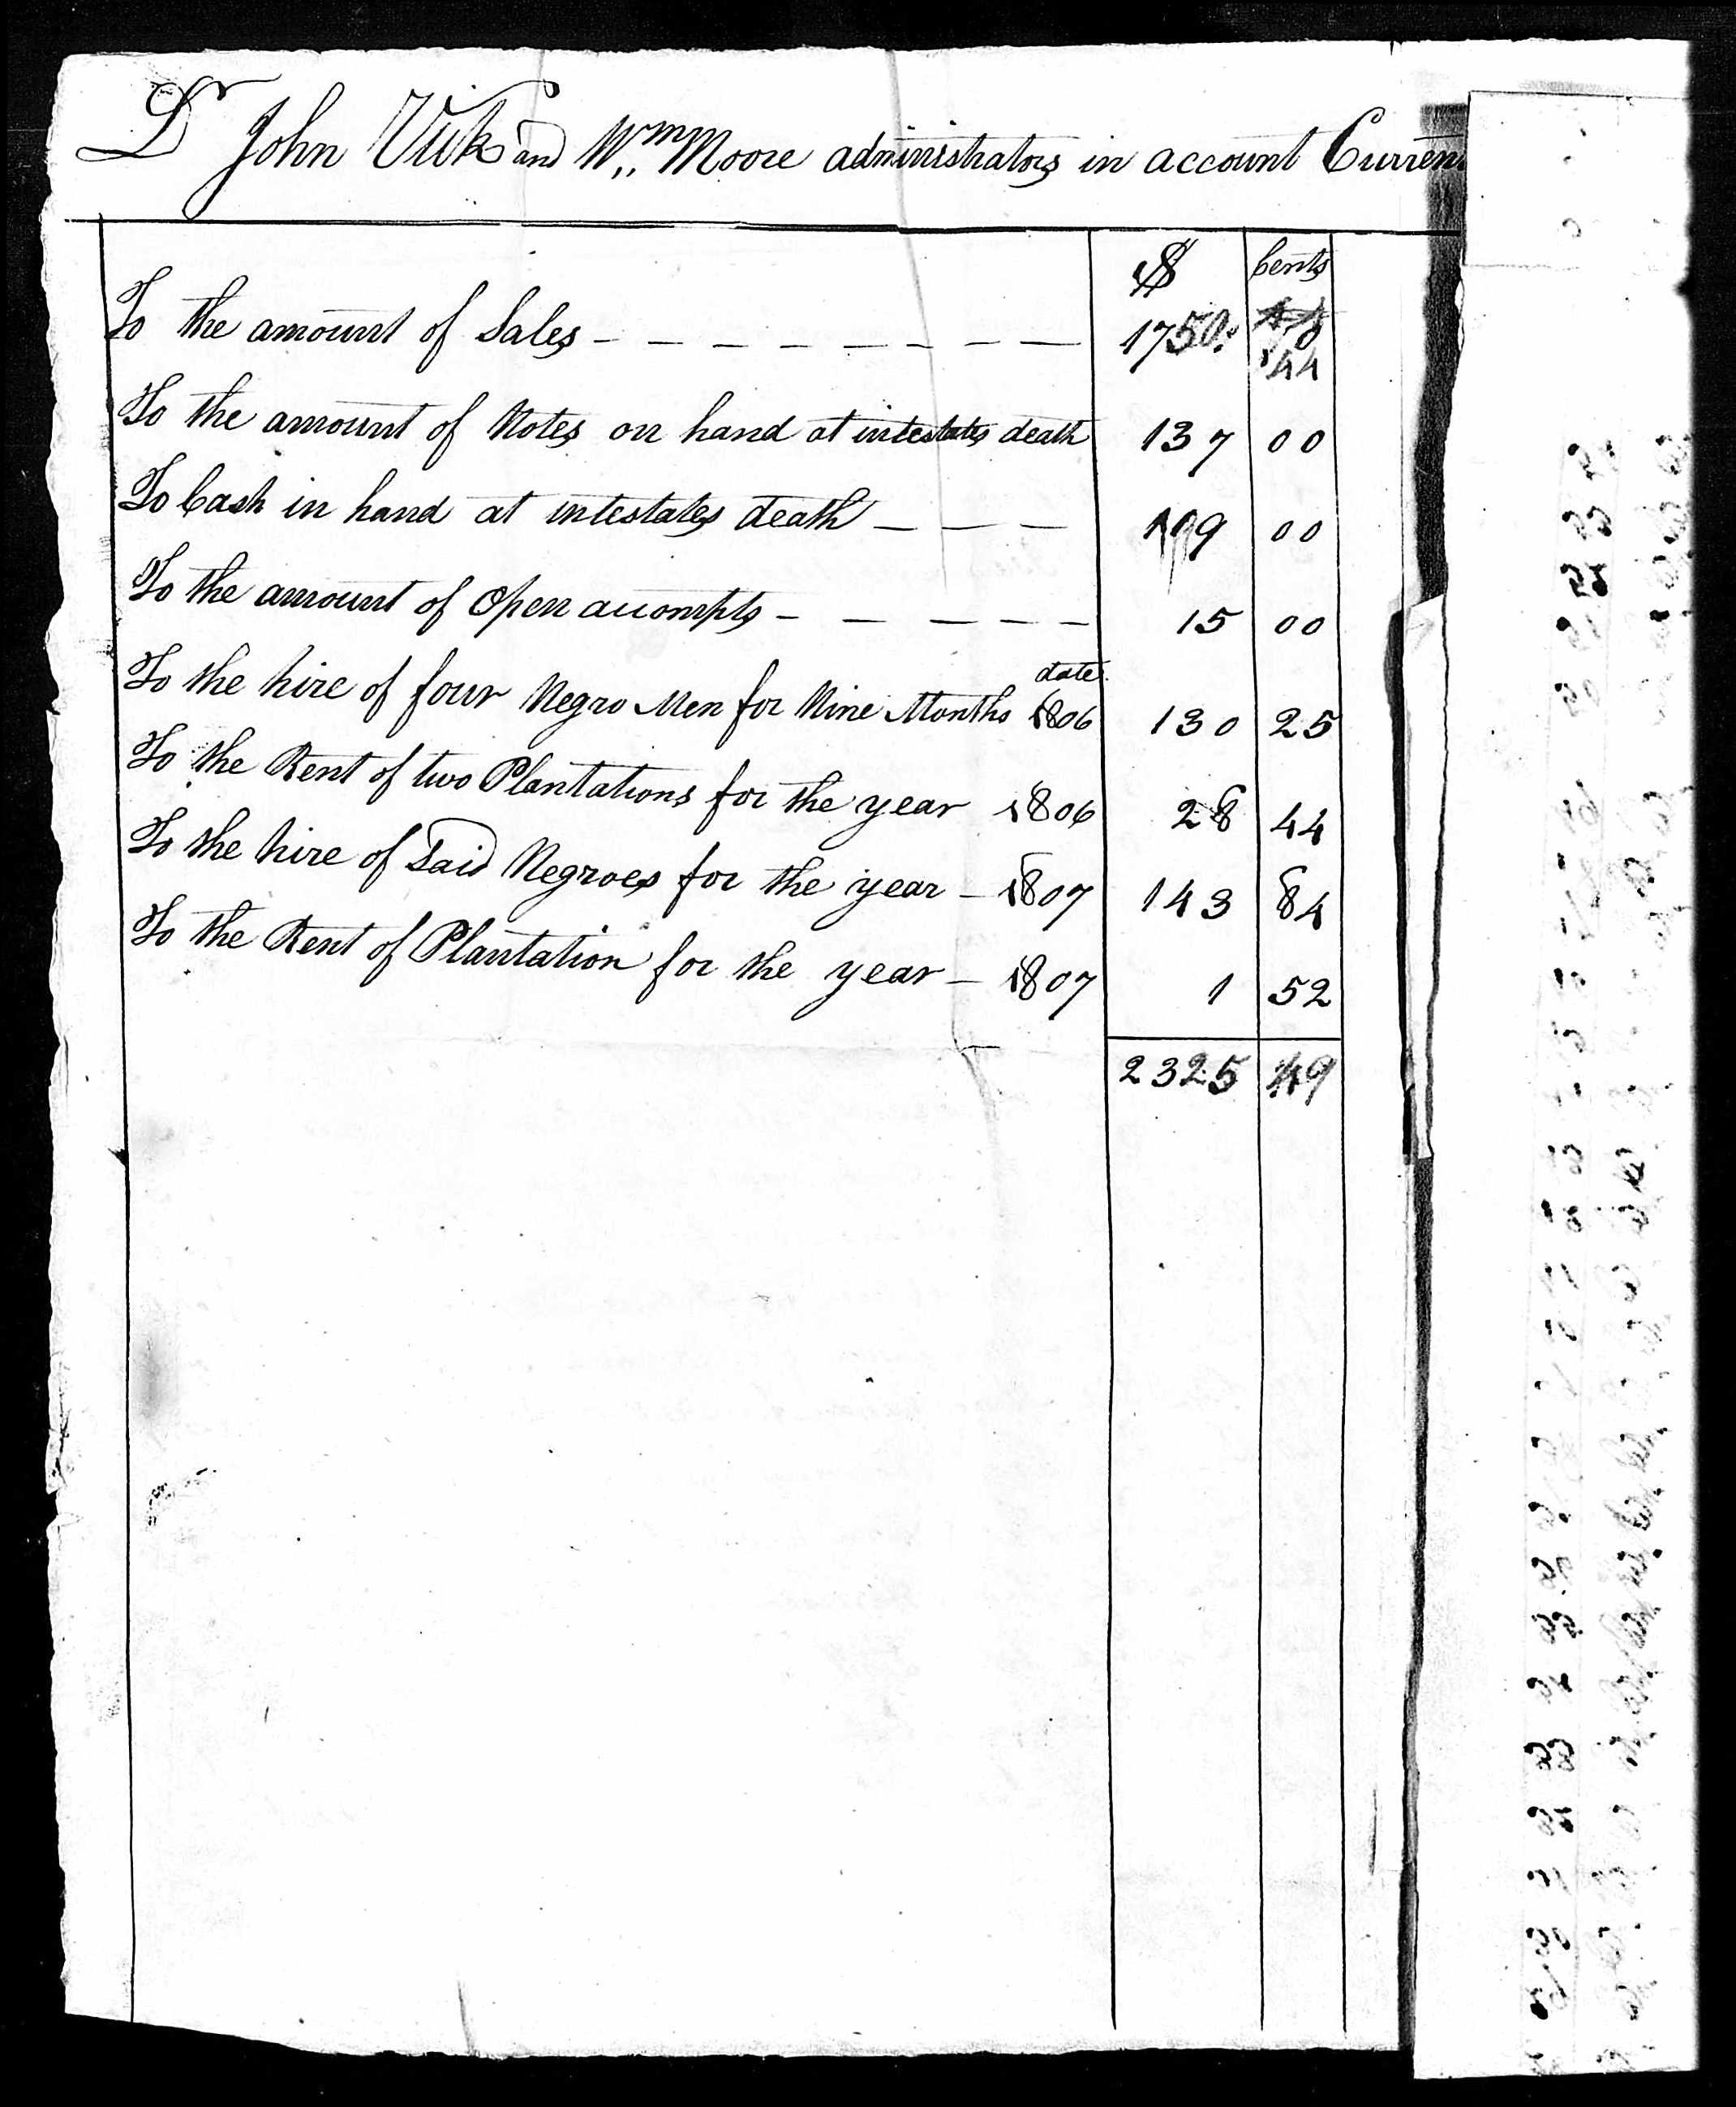 Dr John Vick and Wm Moore administrators in account Curren
$ Cents
To the amount of Sales - - - - - - - - - 1750: 44
To the amount of Notes on hand at intestates death 137 00
To Cash in hand at intestates death - - - 119 00
To the amount of Open accompts - - - - - 15 00
date
To the hire of four Negro Men for Nine Months 1806 130 25
To the Rent of two Plantations for the year 1806 28 44
To the hire of Said Negroes for the year - 1807 143 84
To the Rent of Plantation for the year - 1807 1 52
2325 49